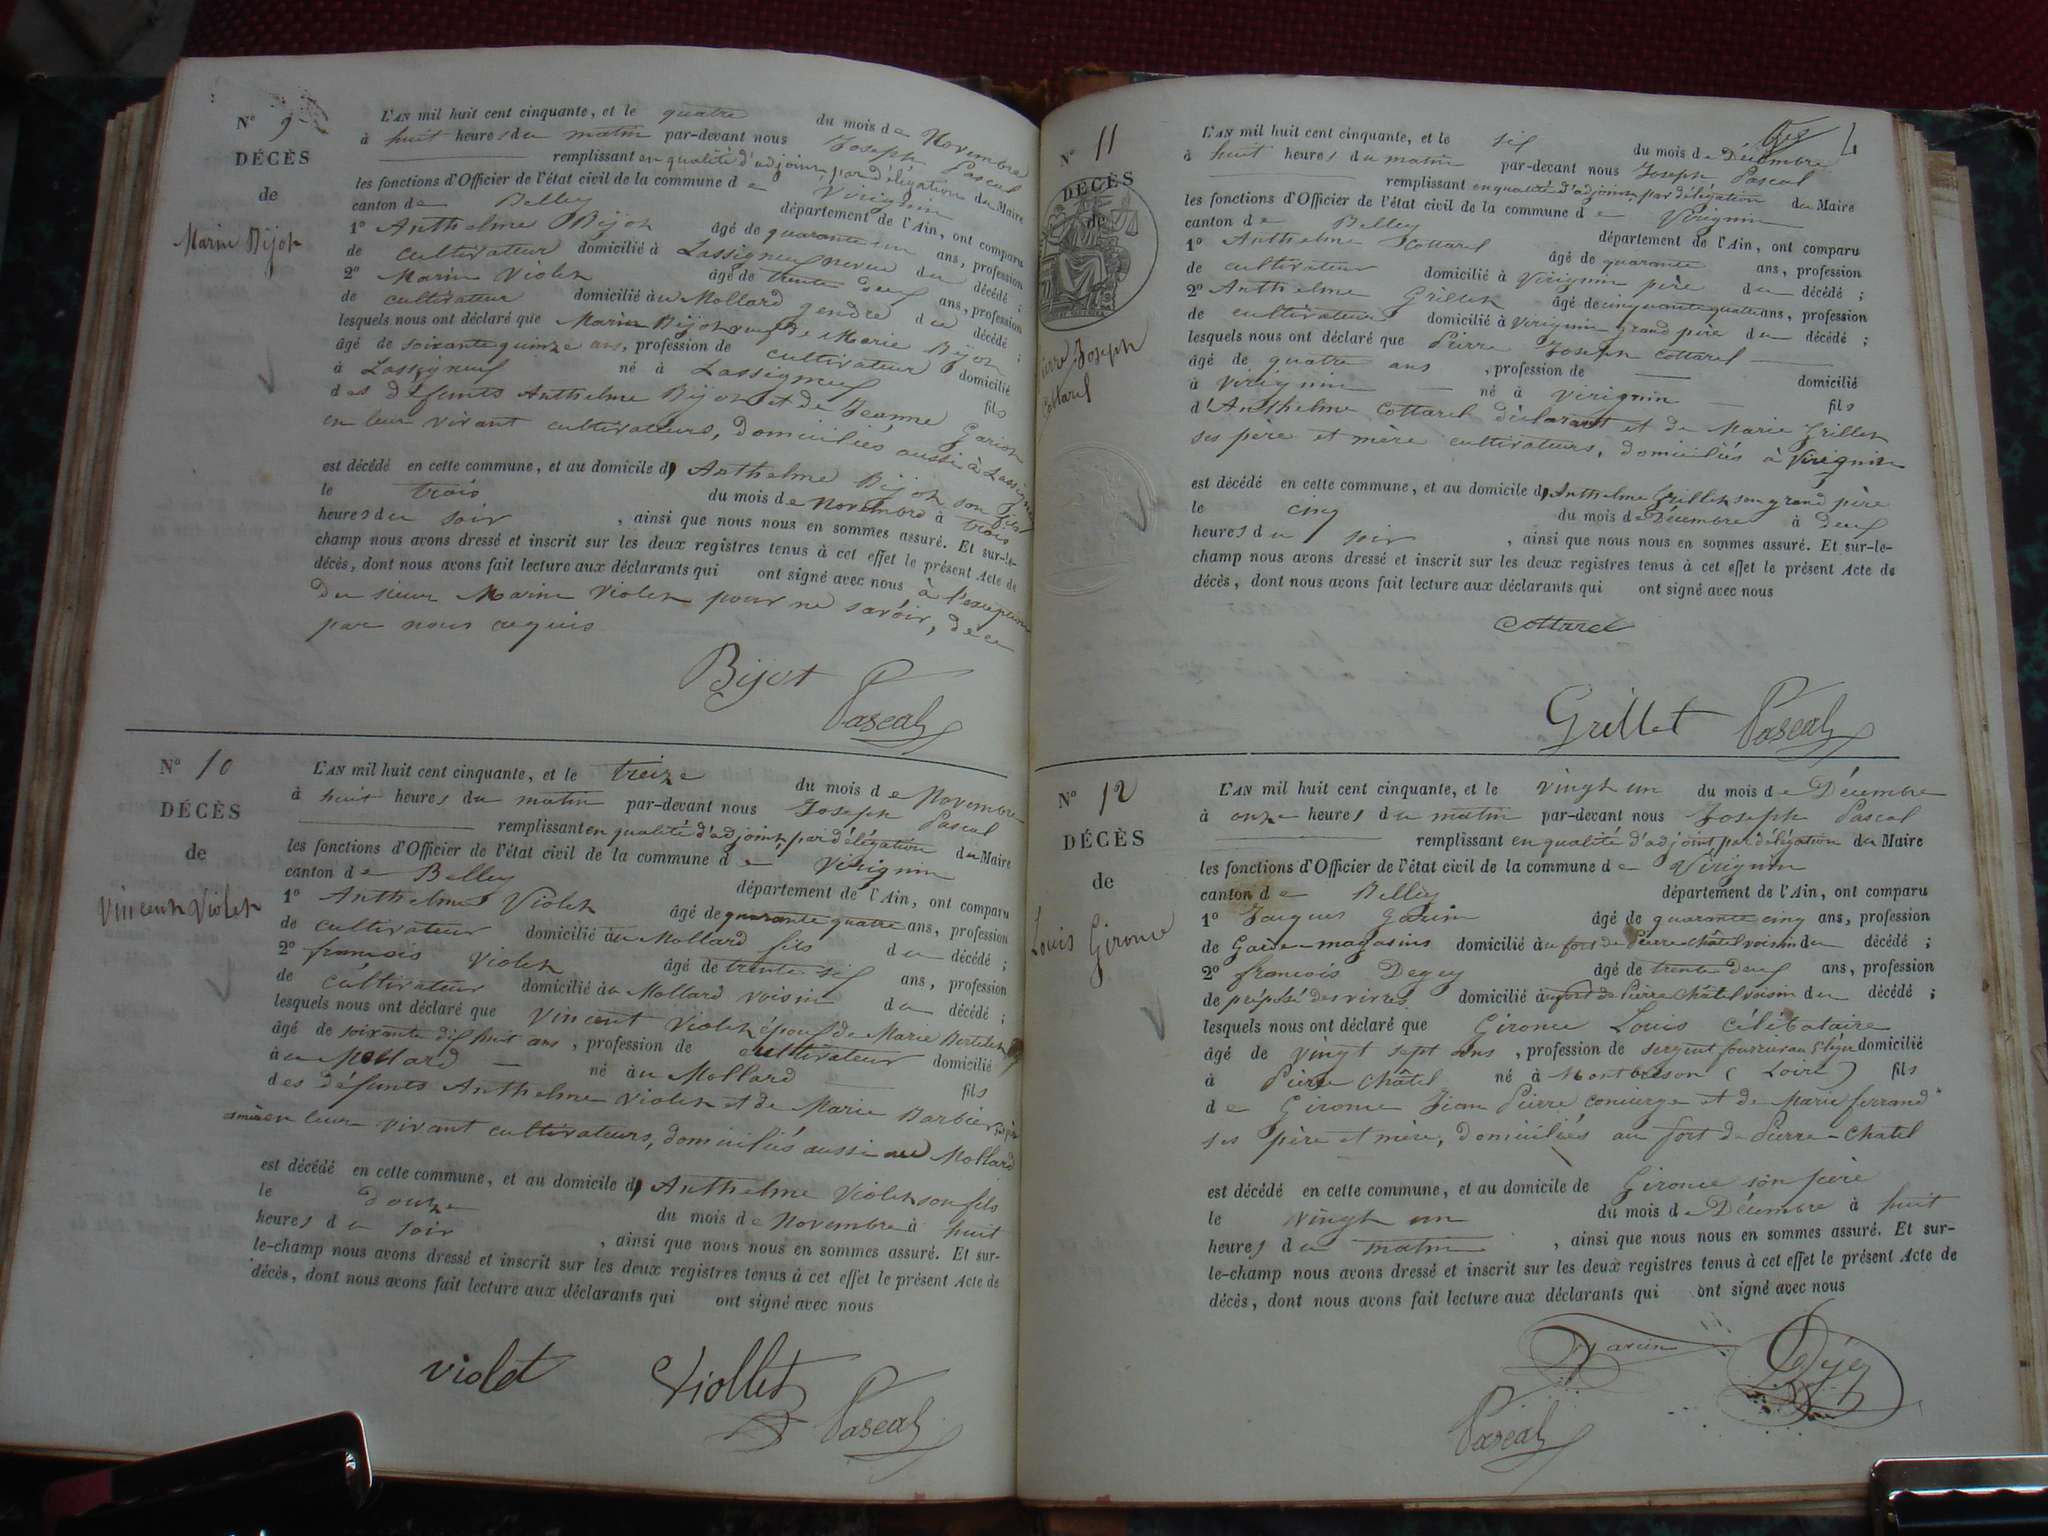 N° 9
DÉCÈS
de
Marin Bijot
L'AN mil huit cent cinquante, et le quatre du mois de Novembre
à huit heures du matin par-devant nous Joseph Pascal
remplissant en qualité d'adjoint, par délégation du Maire
les fonctions d'Officier de l'état civil de la commune de Virignin
canton de Belley département de l'Ain, ont comparu
1° Anthelme Bijot âgé de quarante un ans, profession
de cultivateur domicilié à Lassigneu neveu du décédé ;
2° Marin Violet âgé de trente deux ans, profession
de cultivateur domicilié au Mollard gendre du décédé ;
lesquels nous ont déclaré que Marin Bijot veuf de Marie Bijot
âgé de soixante quinze ans, profession de cultivateur domicilié
à Lassigneu né à Lassigneu fils
des défunts Anthelme Bijot et de Jeanne Garion
en leur vivant cultivateurs, domiciliés aussi à Lassigneu
est décédé en cette commune, et au domicile d' Anthelme Bijot son fils
le trois du mois de Novembre à trois
heures du soir , ainsi que nous nous en sommes assuré. Et sur-le-
champ nous avons dressé et inscrit sur les deux registres tenus à cet effet le présent Acte de
décès, dont nous avons fait lecture aux déclarants qui ont signé avec nous à l'exception
du sieur Marin Violet pour ne savoir, de ce
par nous requis
Bijot Pascal
N° 10
DÉCÈS
de
Vincent Violet
L'AN mil huit cent cinquante, et le treize du mois de Novembre
à huit heures du matin par-devant nous Joseph Pascal
remplissant en qualité d'adjoint, par délégation du Maire
les fonctions d'Officier de l'état civil de la commune de Virignin
canton de Belley département de l'Ain, ont comparu
1° Anthelme Violet âgé de quarante quatre ans, profession
de cultivateur domicilié au Mollard fils du décédé ;
2° françois Violet âgé de trente six ans, profession
de cultivateur domicilié au Mollard voisin du décédé ;
lesquels nous ont déclaré que Vincent Violet époux de Marie Bertelet
âgé de soixante dix huit ans , profession de cultivateur domicilié
au Mollard né au Mollard fils
des défunts Anthelme Violet et de Marie Barbier ses père
et mère en leur vivant cultivateurs, domiciliés aussi au Mollard
est décédé en cette commune, et au domicile d' Anthelme Violet son fils
le douze du mois de Novembre à huit
heures du soir , ainsi que nous nous en sommes assuré. Et sur-
le-champ nous avons dressé et inscrit sur les deux registres tenus à cet effet le présent Acte de
décès, dont nous avons fait lecture aux déclarants qui ont signé avec nous
violet Viollet Pascal
N° 11
DÉCÈS
de
Joseph
Cottarel
L'AN mil huit cent cinquante, et le six du mois de Décembre
à huit heures du matin par-devant nous Joseph Pascal
remplissant en qualité d'adjoint, par délégation du Maire
les fonctions d'Officier de l'état civil de la commune de Virignin
canton de Belley département de l'Ain, ont comparu
1° Anthelme Cottarel âgé de quarante ans, profession
de cultivateur domicilié à Virignin père du décédé ;
2° Anthelme Grillet âgé de cinquante quatre ans, profession
de cultivateur domicilié à Virignin grand père du décédé ;
lesquels nous ont déclaré que Pierre Joseph Cottarel
âgé de quatre ans , profession de domicilié
à Virignin né à Virignin fils
d'Anthelme Cottarel déclarant et de Marie Grillet
ses père et mère cultivateurs, domiciliés à Virignin
est décédé en cette commune, et au domicile d'Anthelme Grillet son grand père
le cinq du mois de Décembre à deux
heures du soir , ainsi que nous nous en sommes assuré. Et sur-le-
champ nous avons dressé et inscrit sur les deux registres tenus à cet effet le présent Acte de
décès, dont nous avons fait lecture aux déclarants qui ont signé avec nous
Cottarel
Grillet Pascal
N° 12
DÉCÈS
de
Louis Gironce
L'AN mil huit cent cinquante, et le vingt un du mois de Décembre
à onze heures du matin par-devant nous Joseph Pascal
remplissant en qualité d'adjoint, par délégation du Maire
les fonctions d'Officier de l'état civil de la commune de Virignin
canton de Belley département de l'Ain, ont comparu
1° Jacques Garin âgé de quarante cinq ans, profession
de Garde-magasins domicilié au fort de Pierre Châtel voisin du décédé ;
2° françois Degey âgé de trente deux ans, profession
de préposé des vivres domicilié au fort de Pierre Châtel voisin du décédé ;
lesquels nous ont déclaré que Gironce Louis célibataire
âgé de vingt sept ans , profession de sergent fourrier au léger domicilié
à Pierre Châtel né à Montbrison ( Loire ) fils
de Gironce Jean Pierre concierge et de Marie ferrand
ses père et mère, domiciliés au fort de Pierre-Chatel
est décédé en cette commune, et au domicile de Gironce son père
le vingt un du mois de Décembre à huit
heures du matin , ainsi que nous nous en sommes assuré. Et sur-
le-champ nous avons dressé et inscrit sur les deux registres tenus à cet effet le présent Acte de
décès, dont nous avons fait lecture aux déclarants qui ont signé avec nous
Garin
Pascal